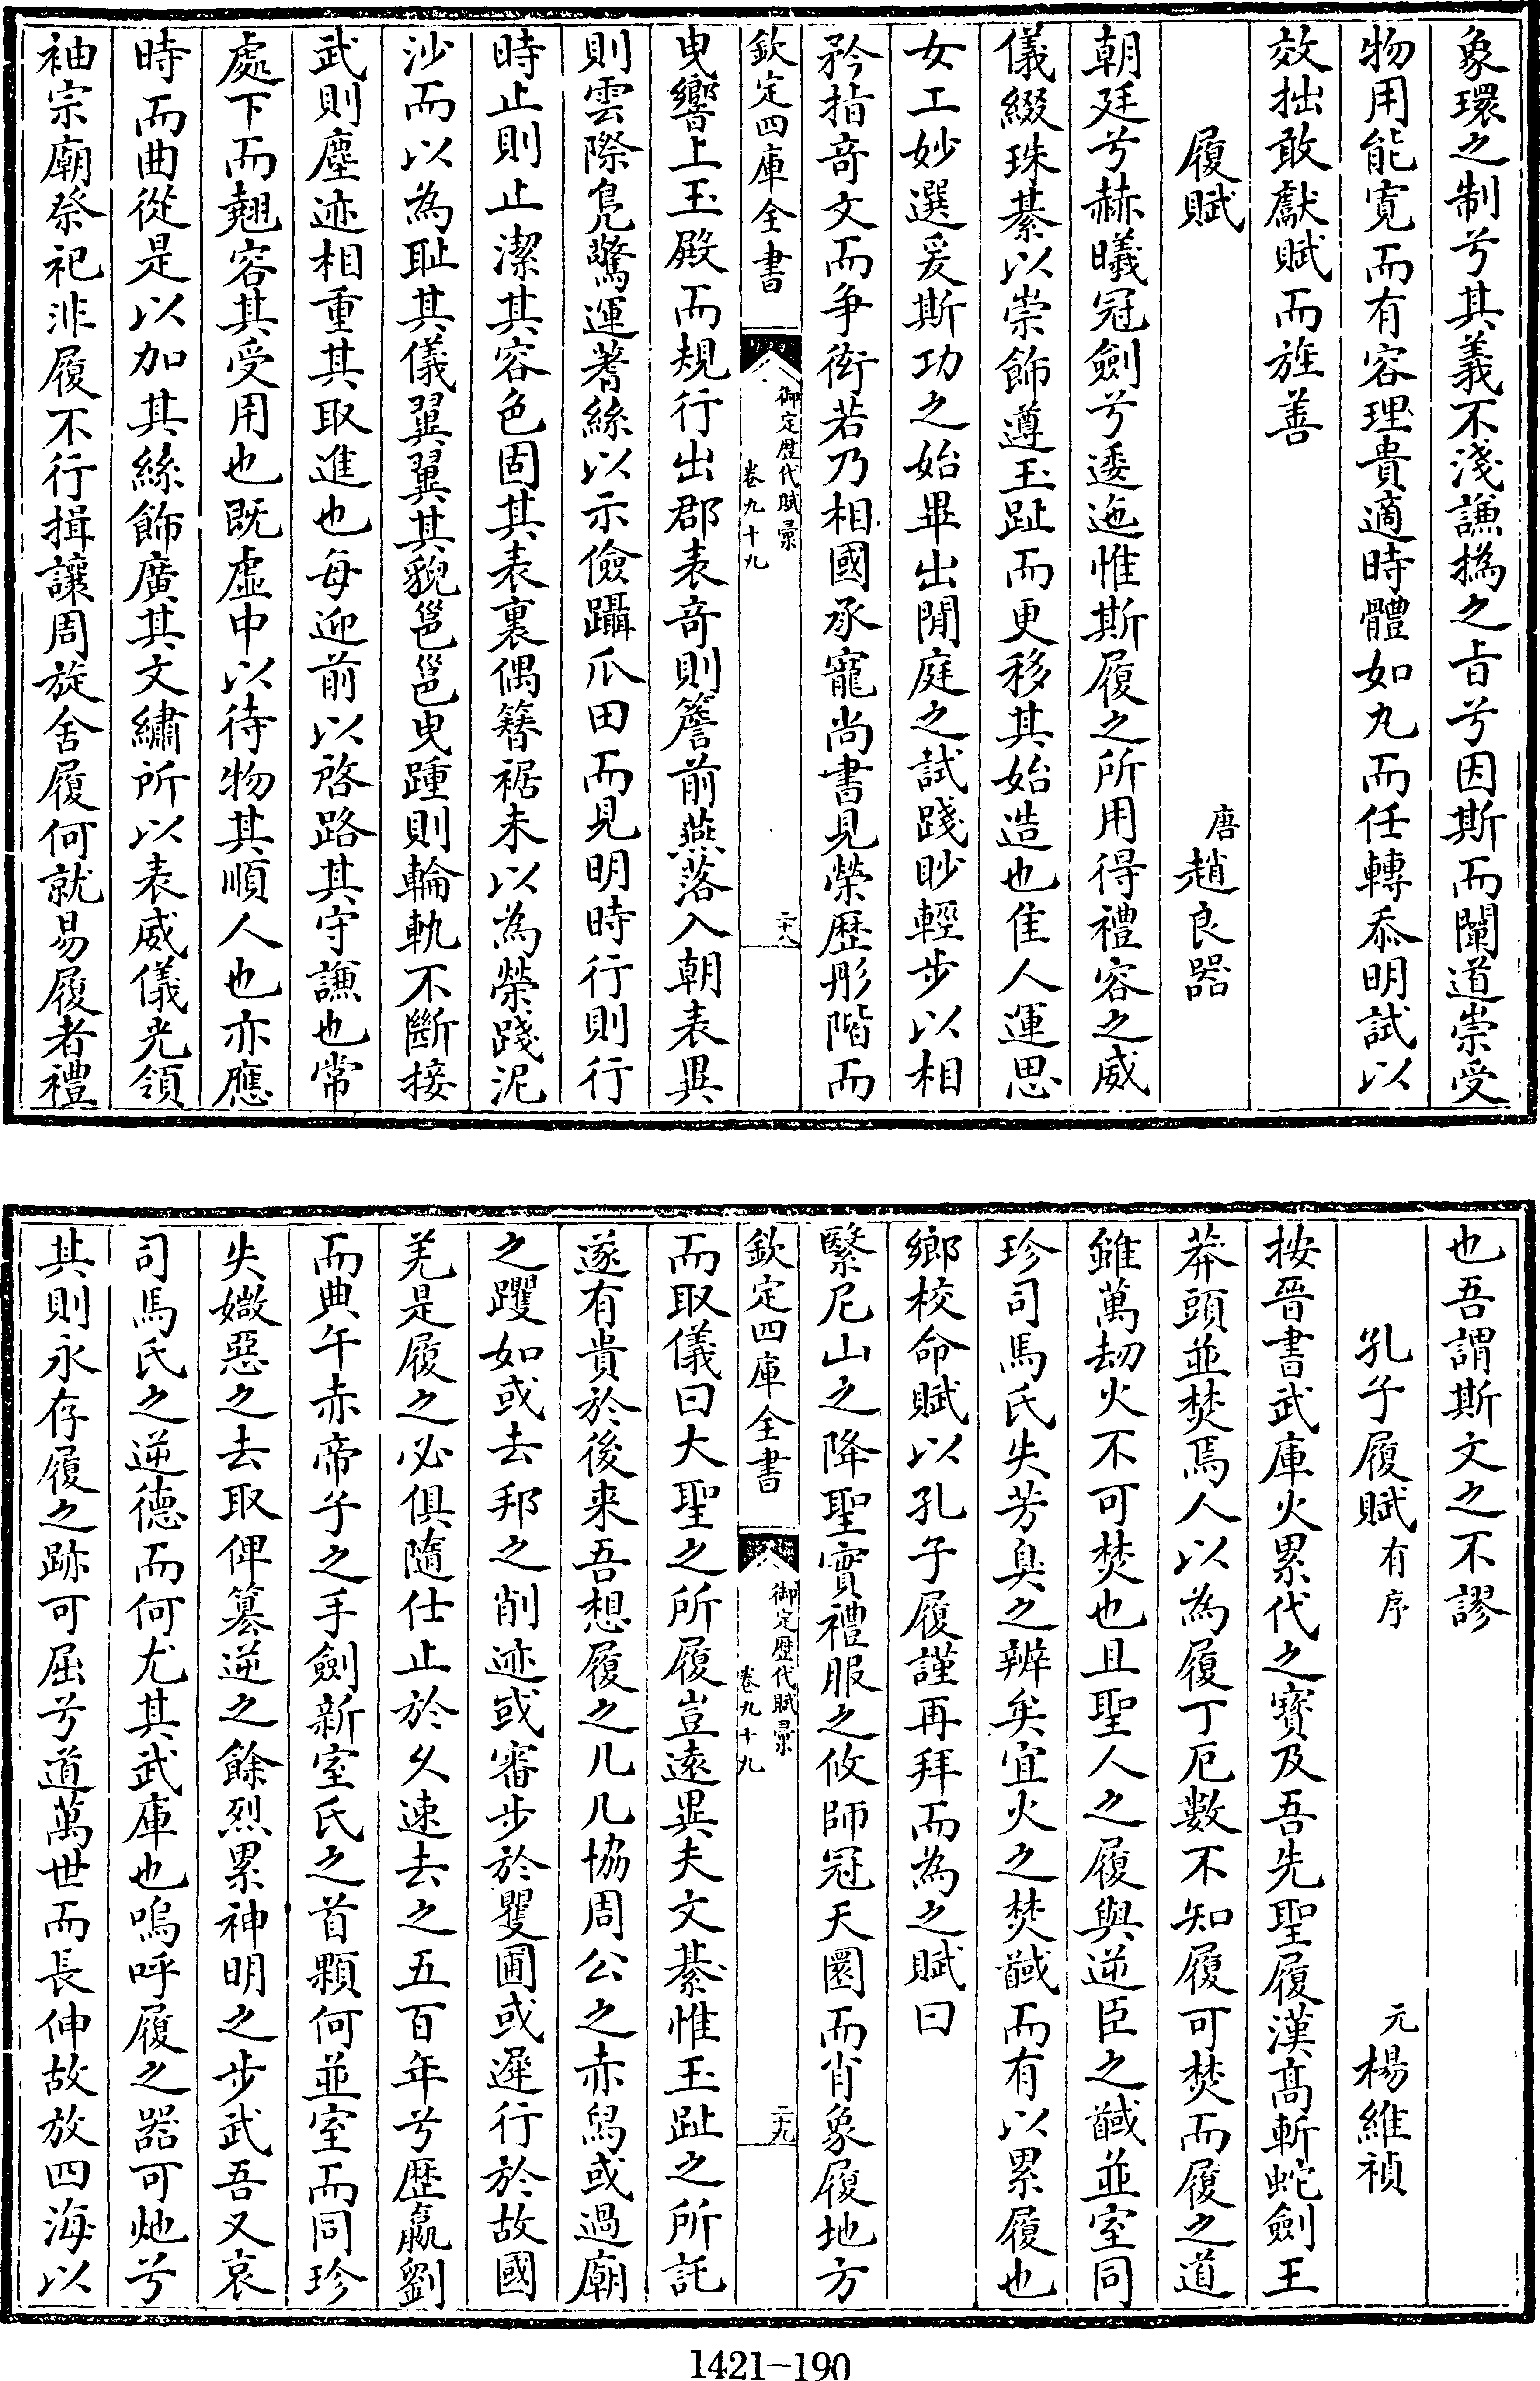 象環之制兮其義不淺謙撝之旨兮因斯而闡道崇受
物用能寛而有容理貴適時體如丸而任轉忝明試以
效拙敢獻賦而旌善
履賦
唐趙良器
朝廷兮赫曦冠劍兮逶迤惟斯履之所用得禮容之威
儀綴珠綦以崇飾遵玉趾而更移其始造也隹人運思
女工妙選爰斯功之始畢出閒庭之試踐眇輕步以相
矜指竒文而争衒若乃相國承寵尚書見榮歴彤階而
欽定四庫全書
御定歴代賦彙
卷九十九
二十八
曵響上玉殿而規行出郡表竒則簷前燕落入朝表異
則雲際鳬驚運蓍絲以示儉躡爪田而見明時行則行
時止則止潔其容色固其表裏偶簪裾未以為榮踐泥
沙而以為耻其儀翼翼其貌邕邕曵踵則輪軌不斷接
武則塵迹相重其取進也每迎前以啓路其守謙也常
處下而翹容其受用也既虚中以待物其順人也亦應
時而曲從是以加其絲飾廣其文繡所以表威儀光領
袖宗廟祭祀非履不行揖讓周旋舍履何就易履者禮
也吾謂斯文之不謬
孔子履賦有序
元楊維禎
按晉書武庫火累代之寳及吾先聖履漢髙斬蛇劍王
莽頭並焚焉人以為履丁厄數不知履可焚而履之道
雖萬劫火不可焚也且聖人之履與逆臣之馘並室同
珍司馬氏失芳臭之辨矣宜火之焚馘而有以累履也
鄉校命賦以孔子履謹再拜而為之賦曰
繄尼山之降聖實禮服之攸師冠天圜而肖象履地方
欽定四庫全書
御定歴代賦彙
卷九十九
二十九
而取儀曰大聖之所履豈遠異夫文綦惟玉趾之所託
遂有貴於後来吾想履之几几協周公之赤舄或過廟
之躩如或去邦之削迹或審步於矍圃或遲行於故國
羌是履之必俱隨仕止於久速去之五百年兮歴嬴劉
而典午赤帝子之手劍新室氏之首顆何並室而同珍
失媺惡之去取俾簒逆之餘烈累神明之步武吾又哀
司馬氏之逆德而何尤其武庫也嗚呼履之器可灺兮
其則永存履之跡可屈兮道萬世而長伸故放四海以
1421—190